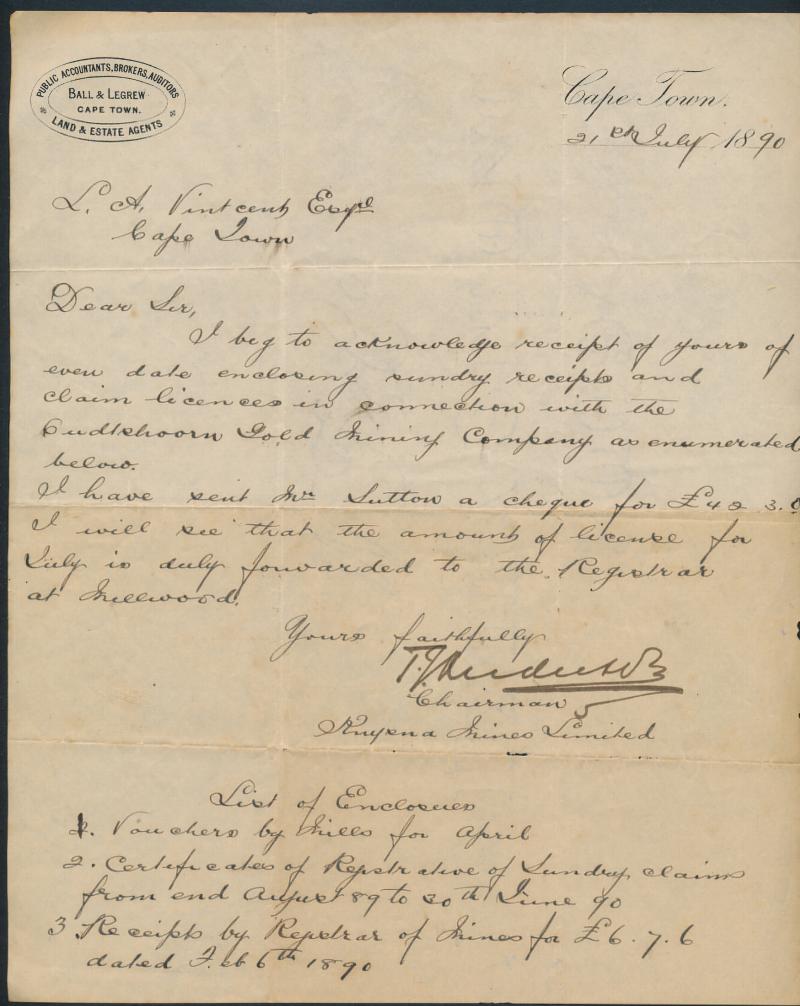 PUBLIC ACCOUNTANTS, BROKERS, AUDITORS
BALL & LEGREW
CAPE TOWN.
LAND & ESTATE AGENTS
Cape Town.
21st July 1890
L. A. Vintcent Esqre
Cape Town
Dear Sir,
I beg to acknowledge receipt of yours of
even date enclosing sundry receipts and
claim licences in connection with the
Oudtshoorn Gold Mining Company as enumerated
below.
I have sent Mr Sutton a cheque for £42.3.0
I will see that the amount of license for
July is duly forwarded to the Registrar
at Millwood.
Yours faithfully
Chairman
Knysna Mines Limited
List of Enclosues
1. Vouchers by Mills for April
2. Certificates of Registrative of Sundry claims
from end August 89 to 30th June 90
3 Receipts by Registrar of Mines for £6.7.6
dated Feb 6th 1890